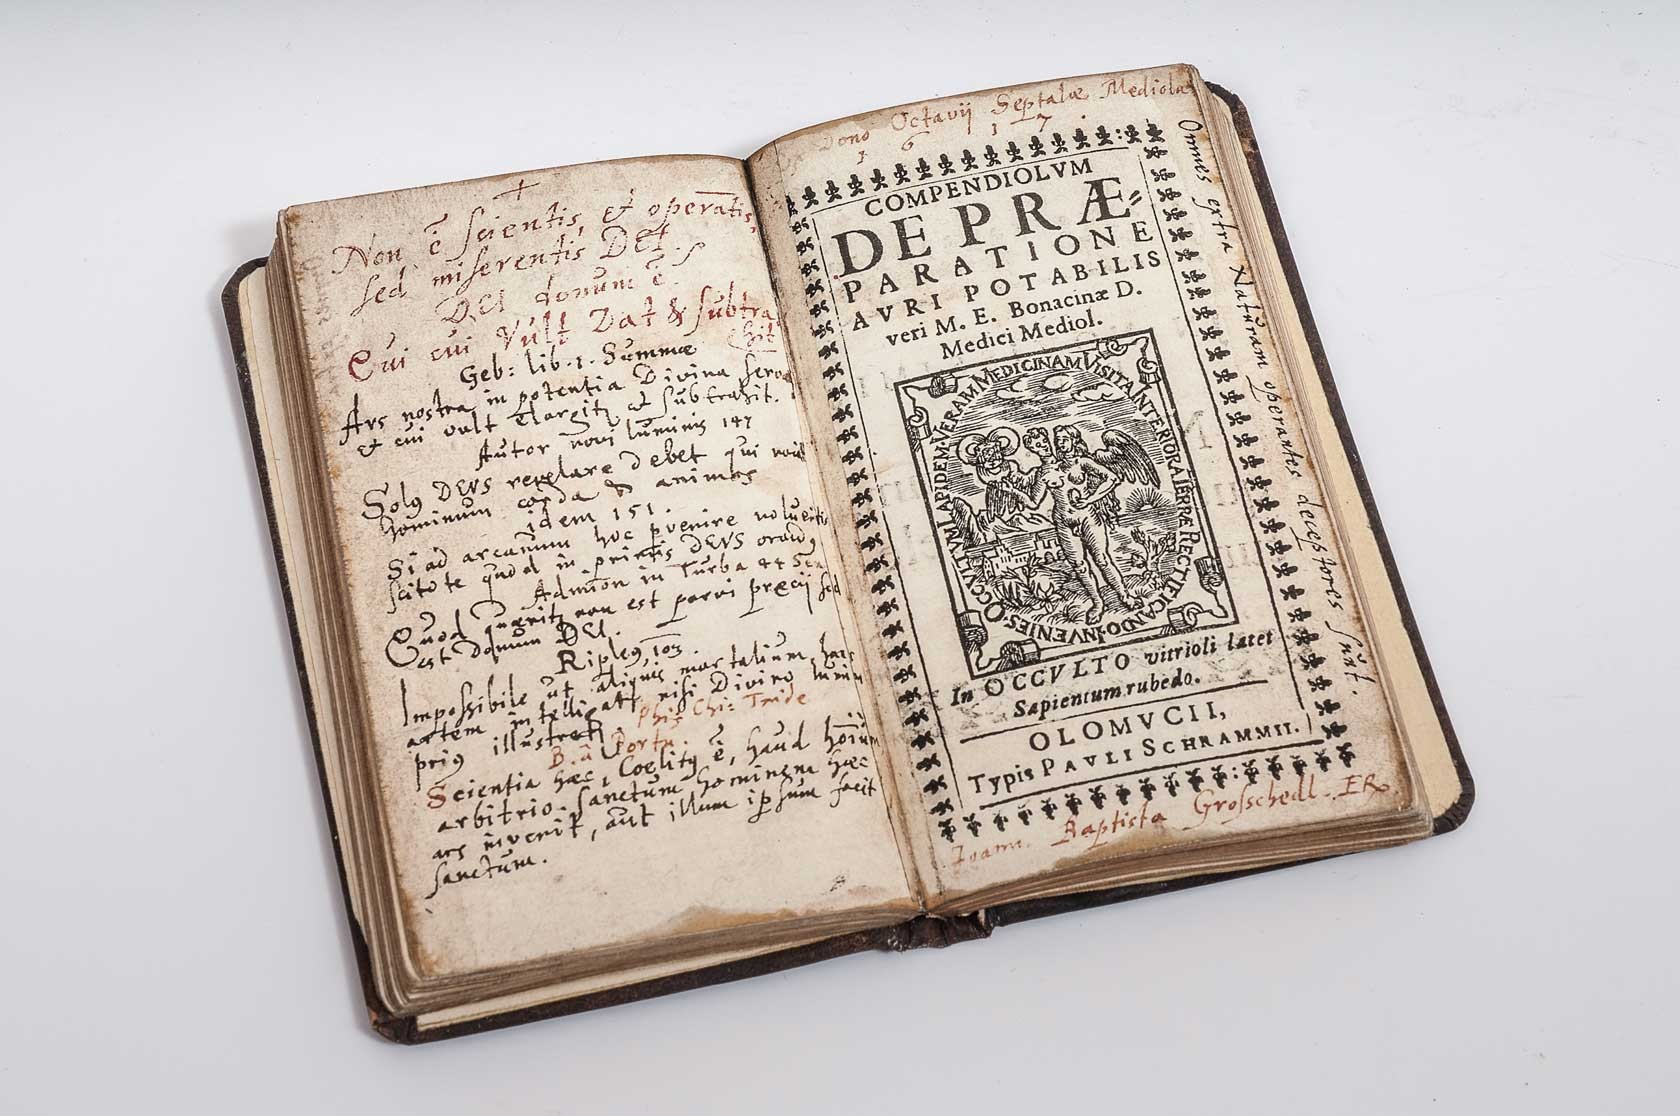 Non ē scientis, & operātis,
sed miserentis DEI.
DEI donum ē.
Qui cui Vult Dat & subtra
hit
Geb: lib. 1. Summæ
Ars nostra in potentia Divina
et cui vult elargitꝫ et subtrahit.
Autor novi luminis 147
Solꝰ DEVS revelare debet qui
hominum corda & animas
idem 151.
Si ad arcanum hoc pvenire
scitote quod in primis DEVS
in Turba 44
Quod quæritꝫ non est parvi precij sed
est donum DEI.
Ripleꝰ, 103
Impossibile ut aliquis mortalium hanc
artem intelligat nisi Divino lumine
priꝰ illustretꝫ
B. à Portu.
Scientia hæc, Coelitꝰ ē, haud
arbitrio. Sanctum hominem hæc
ars inverit, aut illum ipsum facit
sanctum.
Dono Octavij Septalæ Mediola
1 6 1 7.
COMPENDIOLVM
DE PRÆ-
PARATIONE
AVRI POTABILIS
veri M. E. Bonacinæ D.
Medici Mediol.
VISITA INTERIORA TERRÆ RECTIFICANDO INVENIES OCCVLTVM LAPIDEM VERAM MEDICINAM
In OCCVLTO vitrioli latet
Sapientum rubedo.
OLOMVCII,
Typis PAVLI SCHRAMMII.
Joann. Baptista Grosschedl. ER
Omnes extra Naturam operantes deceptores sunt.